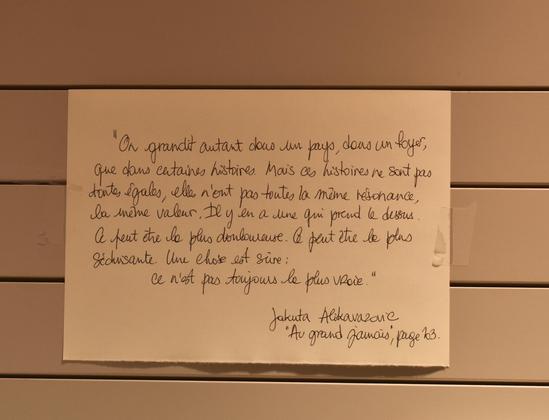 "On grandit autant dans un pays, dans un foyer,
que dans certaines histoires. Mais ces histoires ne sont pas
toutes égales, elles n'ont pas toutes la même résonance,
la même valeur. Il y en a une qui prend le dessus.
Ce peut être la plus douloureuse. Ce peut être la plus
séduisante. Une chose est sûre :
ce n'est pas toujours la plus vraie."
Jakuta Alikavazovic
"Au grand jamais", page 163.